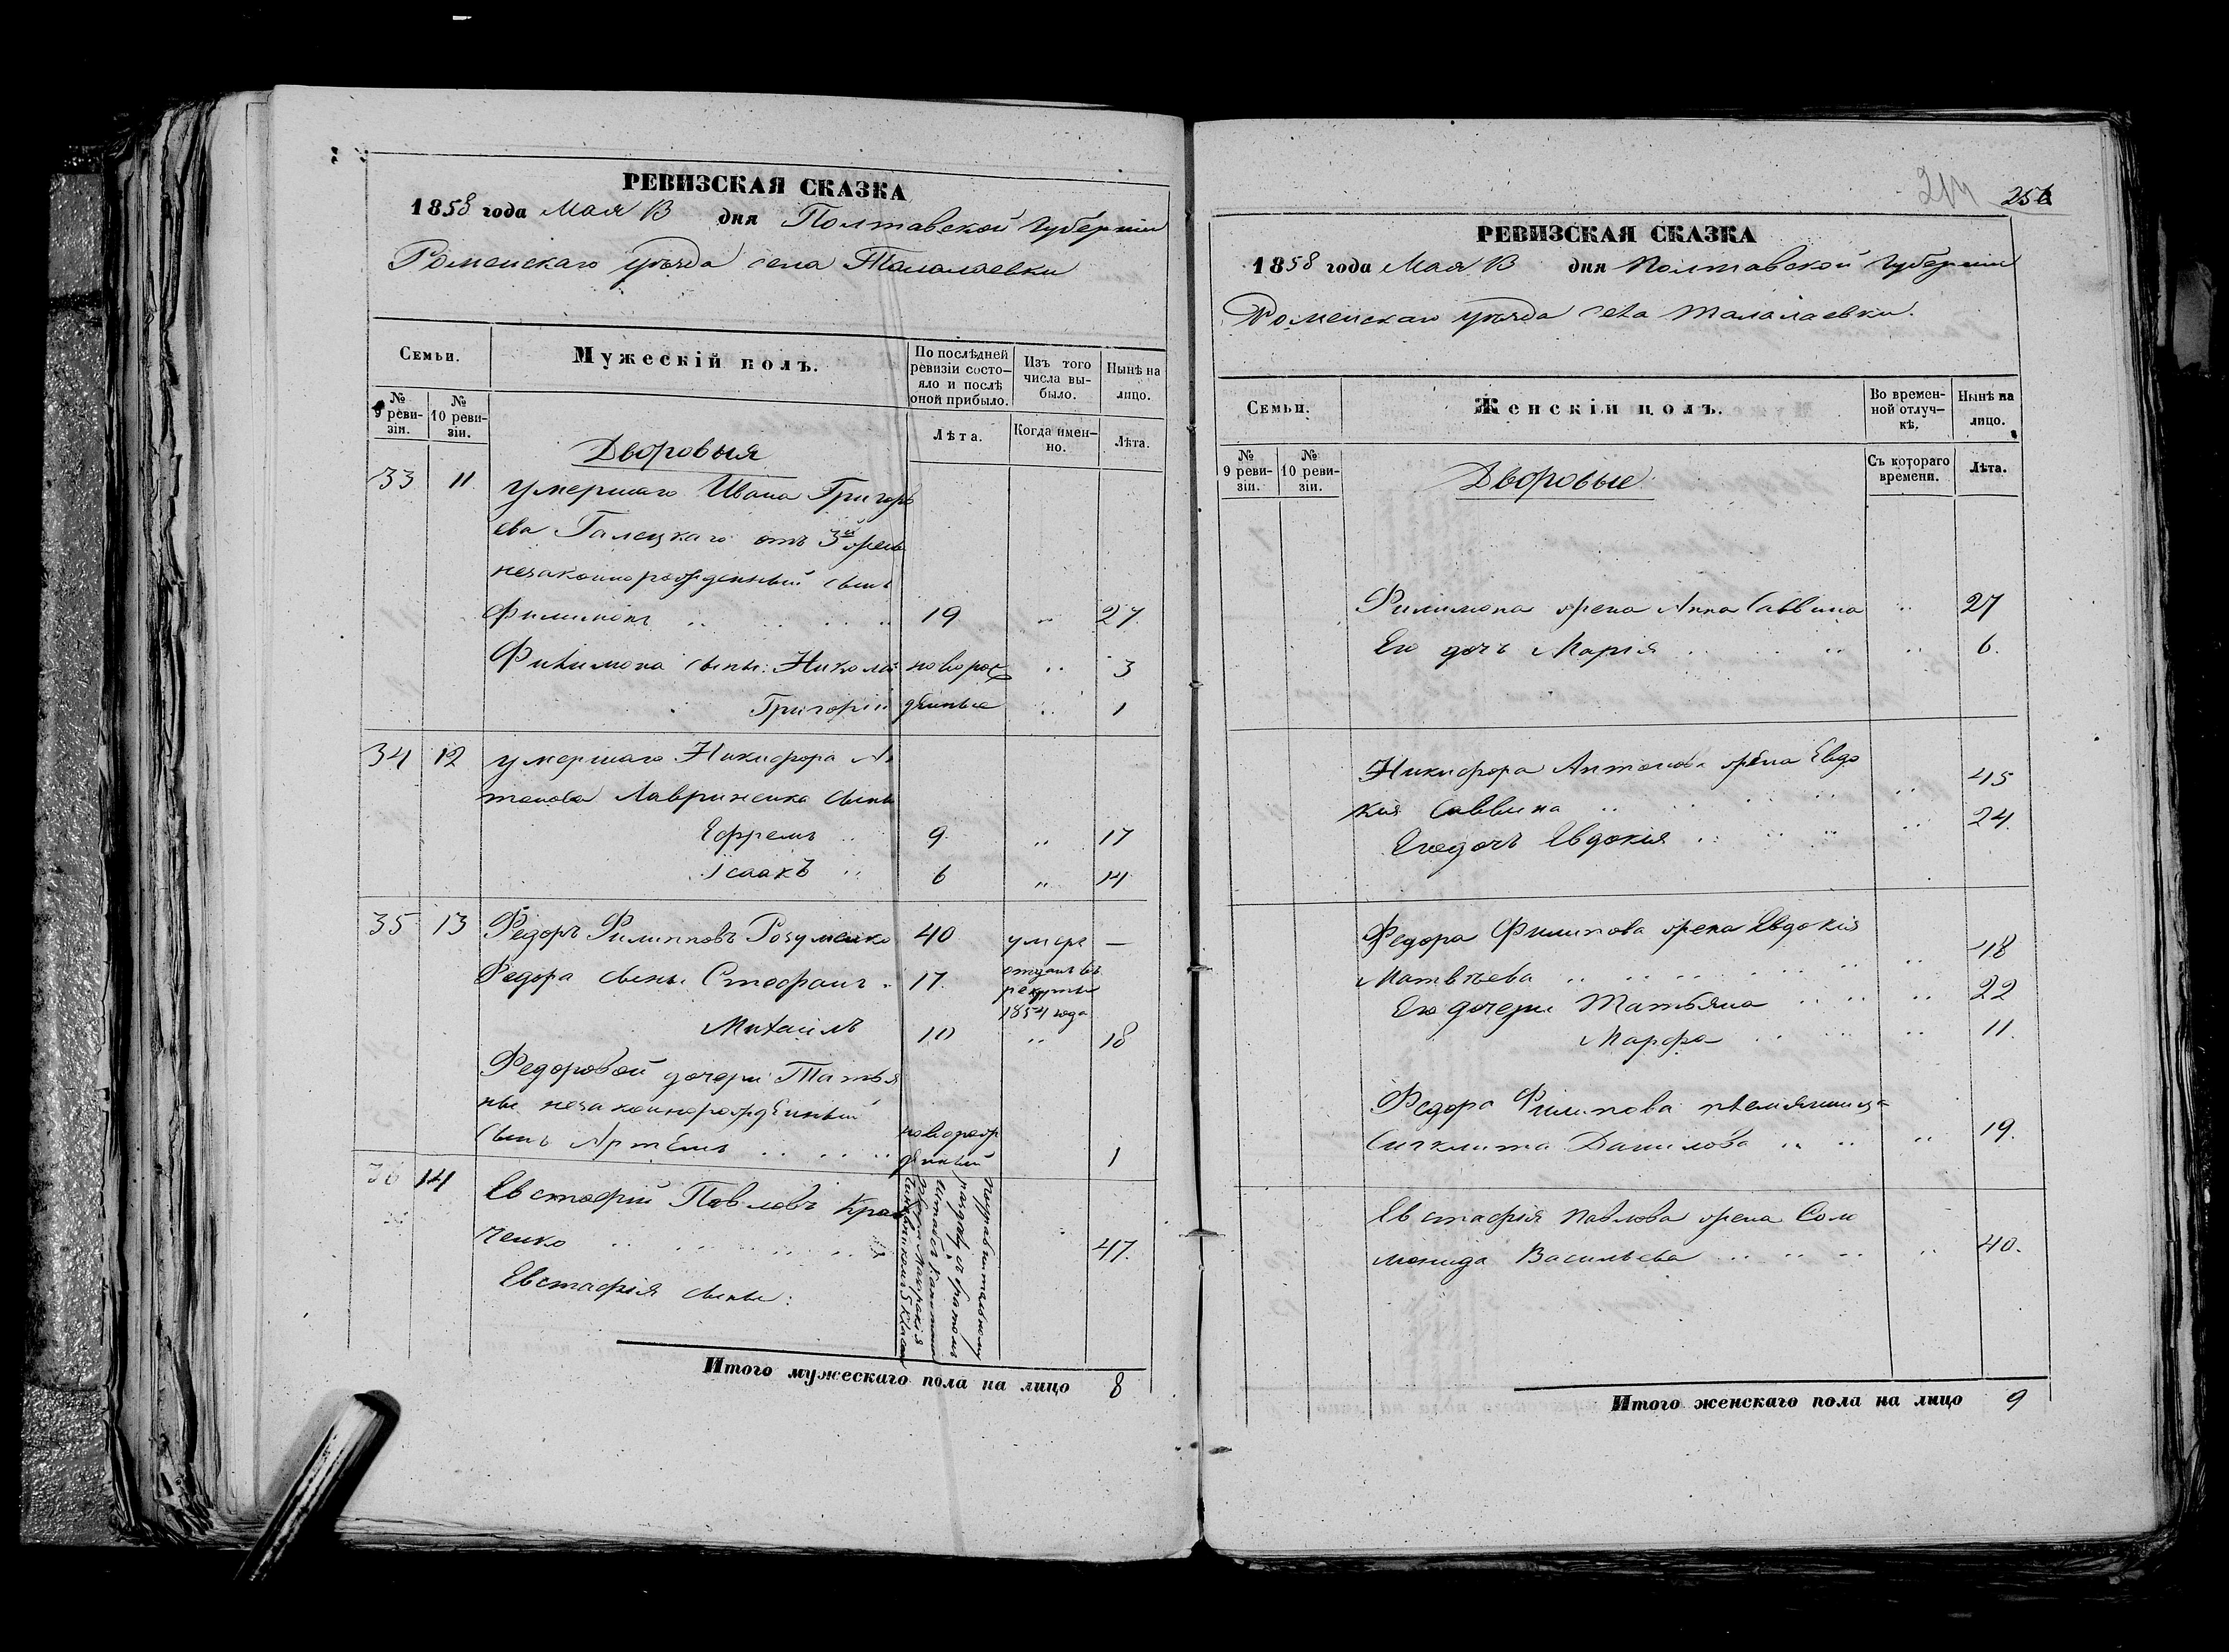 РЕВИЗСКАЯ СКАЗКА
1858 года Мая 13 дня Полтавской губерніи
Роменскаго уѣзда села Талалаевки
Семьи.
Мужескій полъ.
По послѣдней ревизіи состо-
яло и послѣ
оной прибыло.
Изъ того
числа вы-
было.
Нынѣ на
лицо.
№
9 реви-
зіи.
№
10 реви-
зіи.
Лѣта.
Когда имен-
но.
Лѣта.
Дворовыя
33 11 умершаго Ивана Григорь
ева Галецкаго отъ 3й жены
незаконнорожденный сынъ
Филимонъ .. .. 19 .. 27.
Филимона сыны: Николай новорож .. 3
Григорій денные .. 1
34 12 умершаго Никифора Ан
тонова Лавриненка сыны
Ефремъ .. 9 .. 17
Ісаакъ .. 6 .. 14
35 13 Федоръ Филипповъ Розуменко 40 умеръ —
Федора сыны Стефанъ .. 17. отданъ въ
рекруты
1854 года
Михаилъ 10 .. 18
Федоровой дочери Татья
ны незаконнорожденный
сынъ Артемъ .. .. новорож
денный 1
36 14 Евстафій Павловъ Крав
ченко .. .. 47.
Евстафія сыны:
Итого мужескаго пола на лицо 8
214 256
РЕВИЗСКАЯ СКАЗКА
1858 года Мая 13 дня Полтавской губерніи
Роменскаго уѣзда села Талалаевки.
Семьи.
Женскій полъ.
Во времен-
ной отлуч-
кѣ.
Нынѣ на
лицо.
№
9 реви-
зіи.
№
10 реви-
зіи.
Съ котораго
времени.
Лѣта.
Дворовые
Филимона жена Анна Саввина .. 27
Его дочь Марія .. .. 6.
Никифора Антонова жена Евдо
кія Саввина .. .. 45
Его дочь Евдокия .. .. 24.
Федора Филипова жена Евдокія
Матвѣева .. .. 48
Его дочери Татьяна .. .. 22
Марфа .. .. 11.
Федора Филипова племянница
Синклита Данилова .. .. 19.
Евстафія Павлова жена Соло
монида Васильева .. .. 40.
Итого женскаго пола на лицо 9